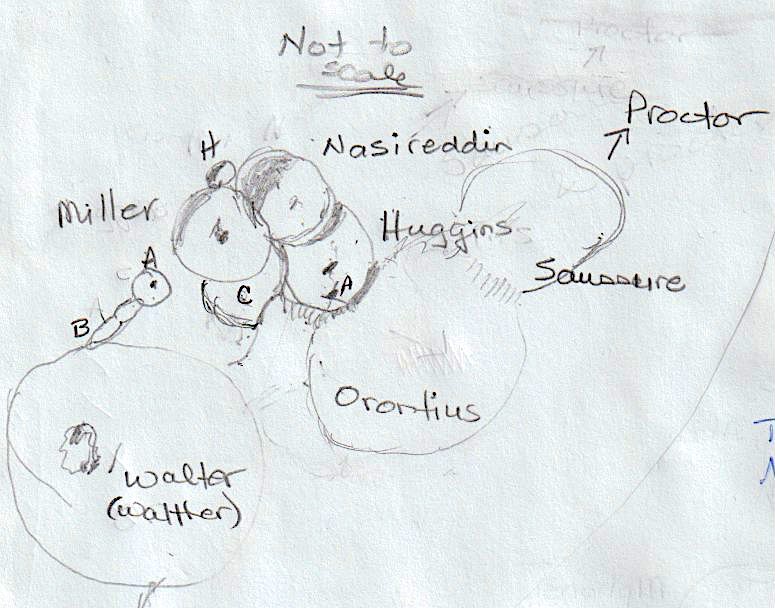 Not to
scale
Proctor
Nasireddin
H
Miller
Huggins
A
Saussure
C
A
B
Orontius
Walter
(Walther)